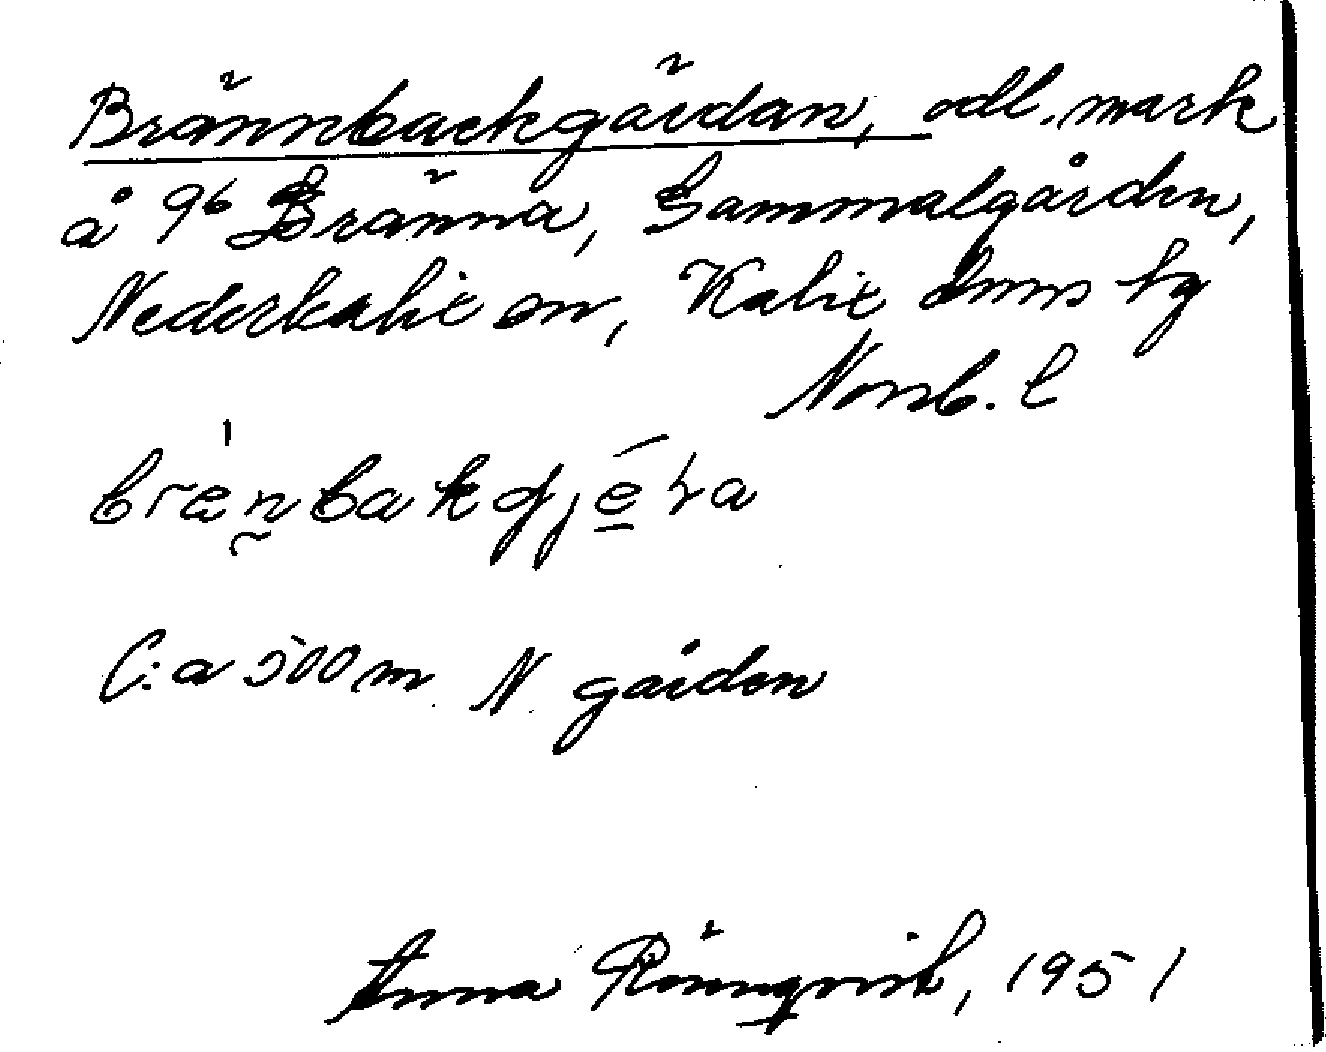 Brännbackgärdan, odl. mark
å 96 Bränna, Gammalgården,
Nederkalix sn, Kalix tg
Norrb. l
brænbakgjéra
C:a 500 m N gården
Anna Rönnqvist, 1951